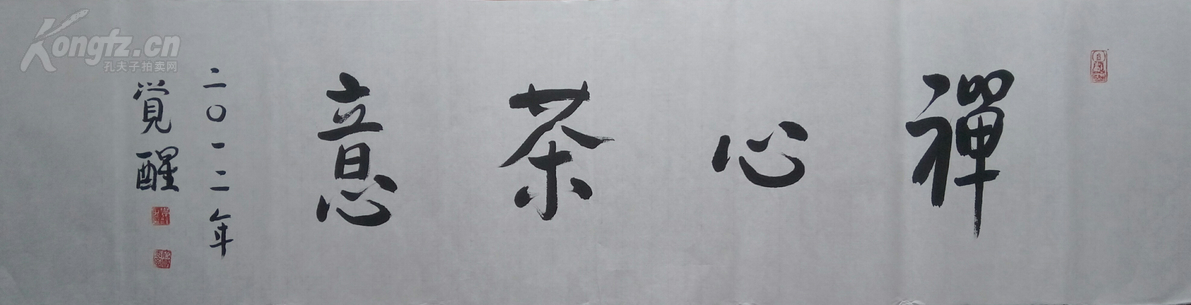 禪心茶意
二〇一二年
覺醒
Kongfz.cn
孔夫子拍卖网